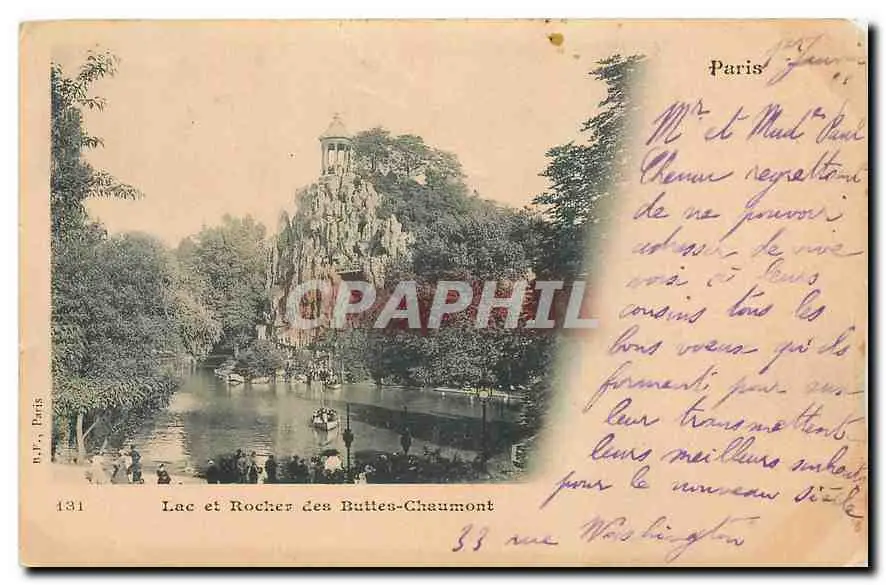 Paris
Mr et Mad^e Paul
regrettent
de ne pouvoir
adresser de vive
voix à leurs
cousins tous les
bons voeux qu'ils
forment pour eux
leur transmettent
leurs meilleurs souhaits
pour le nouveau siècle
33 rue Washington
CPAPHIL
B.F., Paris
131 Lac et Rocher des Buttes-Chaumont